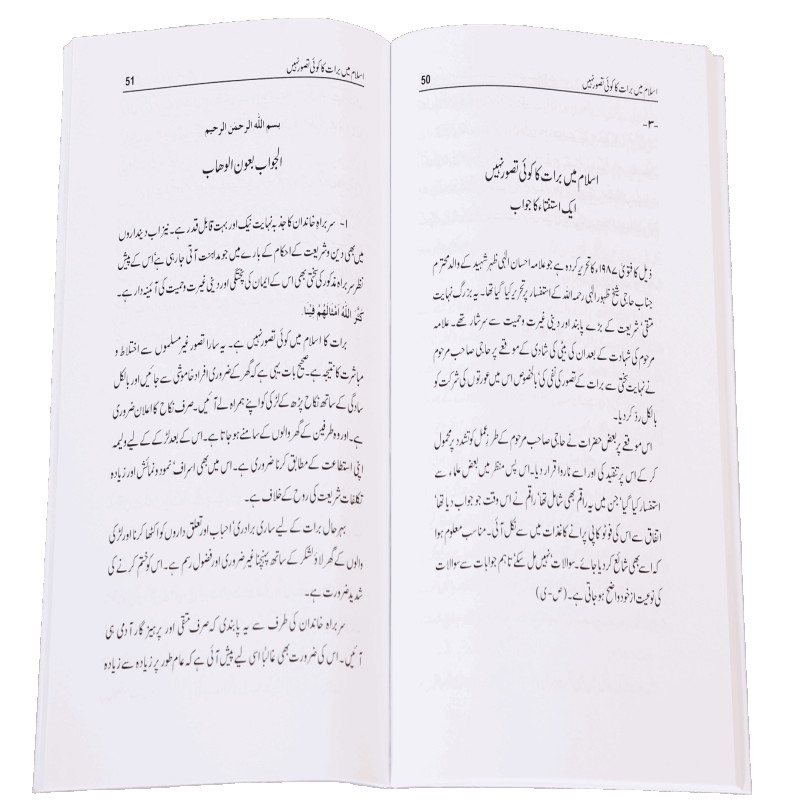 50
اسلام میں برات کا کوئی تصور نہیں
-۳-
اسلام میں برات کا کوئی تصور نہیں
ایک استفتاء کا جواب
ذیل کا فتویٰ ۱۹۸۷ء کا تحریر کردہ ہے جو علامہ احسان الٰہی ظہیر شہید کے والد محترم
جناب حاجی شیخ ظہور الٰہی رحمہ اللہ کے استفسار پر تحریر کیا گیا تھا۔ یہ بزرگ نہایت
متقی‘ شریعت کے بڑے پابند اور دینی غیرت و حمیت سے سرشار تھے۔ علامہ
مرحوم کی شہادت کے بعد ان کی بیٹی کی شادی کے موقعے پر حاجی صاحب مرحوم
نے نہایت سختی سے برات کے تصور کی نفی کی‘ بالخصوص اس میں عورتوں کی شرکت کو
بالکل رد کر دیا۔
اس موقعے پر بعض حضرات نے حاجی صاحب مرحوم کے طرز عمل کو تشدد پر محمول
کر کے اس پر تنقید کی اور اسے ناروا قرار دیا۔ اس پس منظر میں بعض علماء سے
استفسار کیا گیا‘ جن میں یہ راقم بھی شامل تھا‘ راقم نے اس وقت جو جواب دیا تھا‘
اتفاق سے اس کی فوٹو کاپی پرانے کاغذات میں سے نکل آئی۔ مناسب معلوم ہوا
کہ اسے بھی شائع کر دیا جائے۔ سوالات نہیں مل سکے تاہم جوابات سے سوالات
کی نوعیت از خود واضح ہو جاتی ہے۔ (ص-ی)
51
اسلام میں برات کا کوئی تصور نہیں
بسم اللہ الرحمن الرحیم
الجواب بعون الوھاب
۱- سربراہ خاندان کا جذبہ نہایت نیک اور بہت قابل قدر ہے۔ نیز اب دینداروں
میں بھی دین و شریعت کے احکام کے بارے میں جو مداہنت آتی جا رہی ہے‘ اس کے پیش
نظر سربراہ مذکور کی سختی بھی اس کے ایمان کی پختگی اور دینی غیرت و حمیت کی آئینہ دار ہے۔
كَثَّرَ اللّٰهُ اَمْثَالَهُمْ فِيْنَا.
برات کا اسلام میں کوئی تصور نہیں ہے۔ یہ سارا تصور غیر مسلموں سے اختلاط و
مباشرت کا نتیجہ ہے۔ صحیح بات یہی ہے کہ گھر کے ضروری افراد خاموشی سے جائیں اور بالکل
سادگی کے ساتھ نکاح پڑھ کے لڑکی کو اپنے ہمراہ لے آئیں۔ صرف نکاح کا اعلان ضروری
ہے۔ اور وہ طرفین کے گھر والوں کے سامنے ہو جاتا ہے۔ اس کے بعد لڑکے کے لیے ولیمہ
اپنی استطاعت کے مطابق کرنا ضروری ہے۔ اس میں بھی اسراف‘ نمود و نمائش اور زیادہ
تکلفات شریعت کی روح کے خلاف ہے۔
بہرحال برات کے لیے ساری برادری‘ احباب اور تعلق داروں کو اکٹھا کرنا اور لڑکی
والوں کے گھر لاؤ لشکر کے ساتھ پہنچنا غیر ضروری اور فضول رسم ہے۔ اس کو ختم کرنے کی
شدید ضرورت ہے۔
سربراہ خاندان کی طرف سے یہ پابندی کہ صرف متقی اور پرہیز گار آدمی ہی
آئیں۔ اس کی ضرورت بھی غالباً اسی لیے پیش آئی ہے کہ عام طور پر زیادہ سے زیادہ